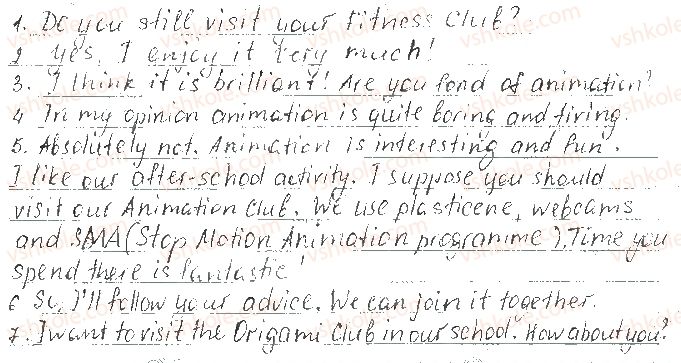 1. Do you still visit your fitness club?
2 Yes, I enjoy it very much!
3. I think it is brilliant! Are you fond of animation?
4 In my opinion animation is quite boring and tiring.
5. Absolutely not. Animation is interesting and fun.
I like our after-school activity. I suppose you should
visit our Animation Club. We use plasticene, webcams
and SMA (Stop Motion Animation programme). Time you
spend there is fantastic!
6 So, I'll follow your advice. We can join it together.
7. I want to visit the Origami Club in our school. How about you?